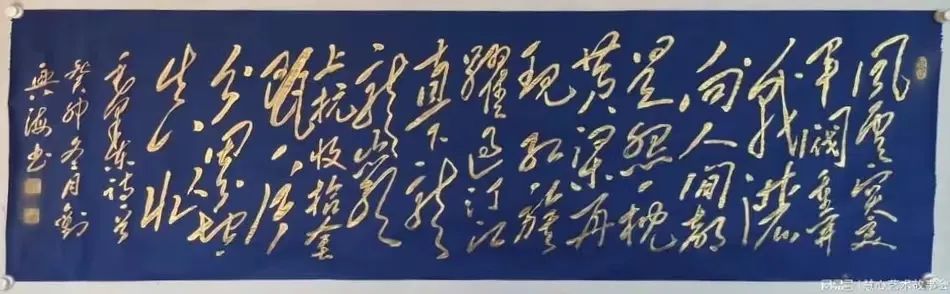 風雲突變
軍閥重開
戰灑
向人間都
是怨一枕
黄粱再
現紅旗
躍過汀江
直下龍
龍巖
上杭收拾金
甌一片
分田分地
真忙
毛澤東詩一首
癸卯冬月劉
興海書
慧心艺术故事会